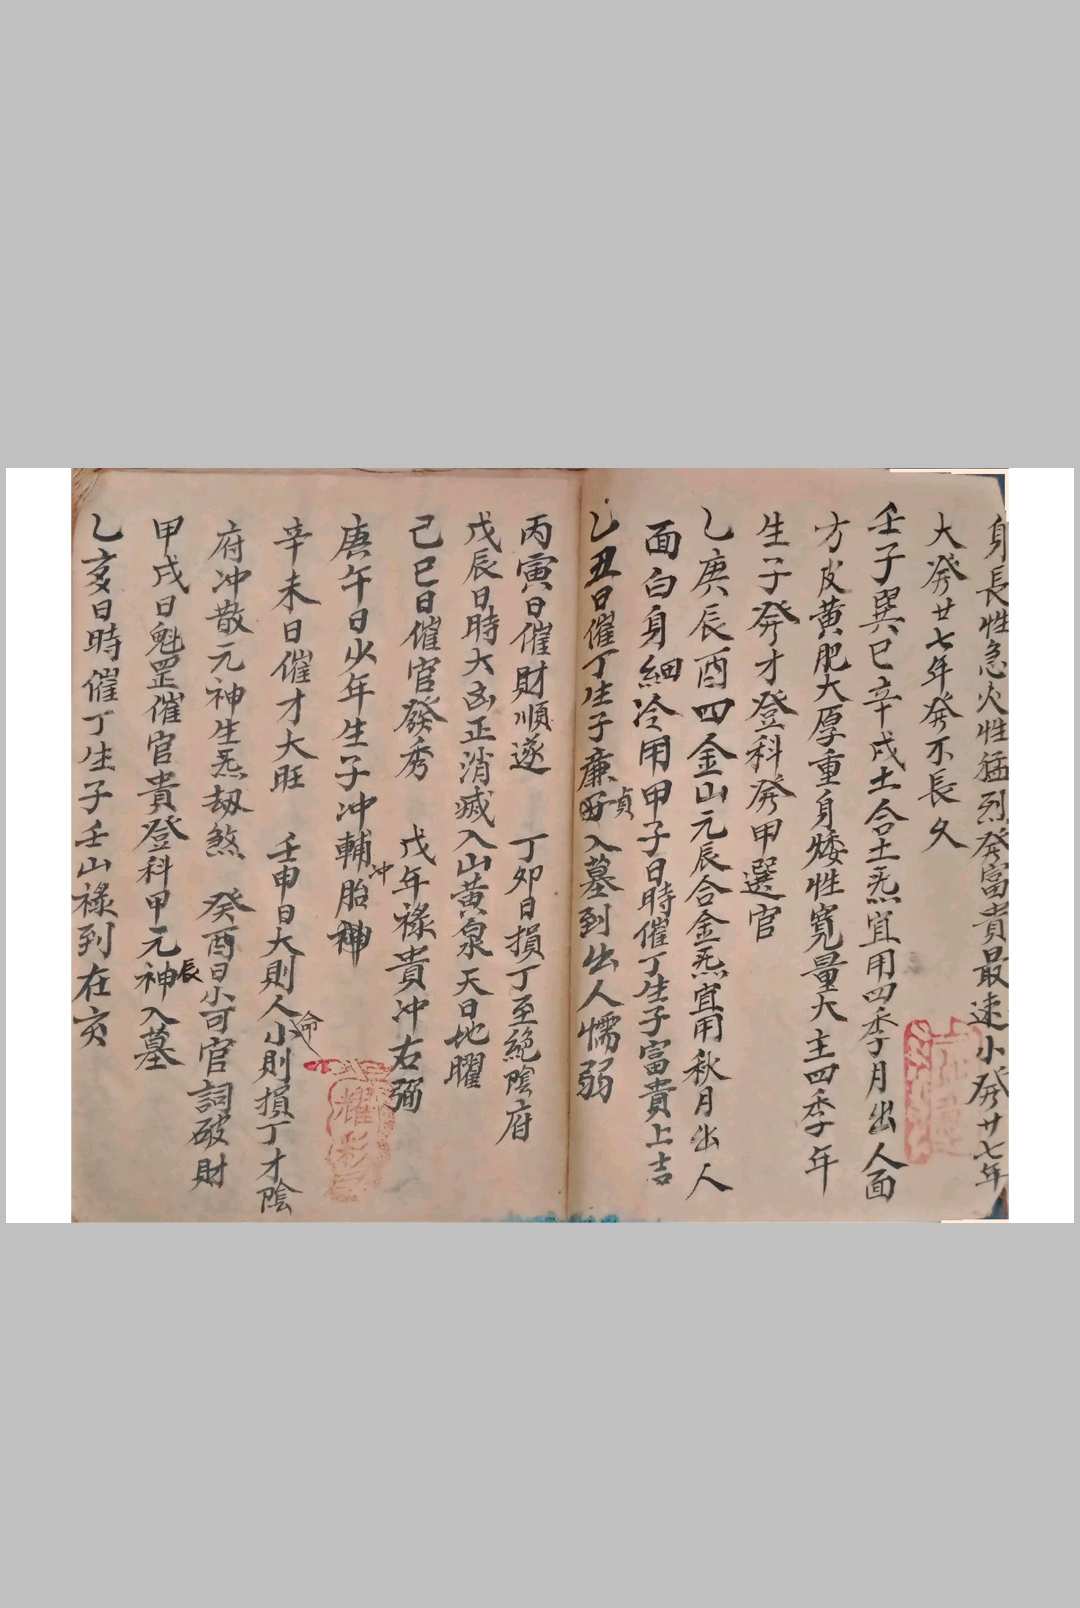 身長性急火性猛烈發富貴最速小發廿七年
大發廿七年發不長久
壬子巽巳辛戌土合土炁宜用四季月出人面
方皮黃肥大厚重身矮性寬量大主四季年
生子發才登科發甲選官
乙庚辰酉四金山元辰合金炁宜用秋月出人
面白身細冷用甲子日時催丁生子富貴上吉
乙丑日催丁生子廉貞入墓到出人懦弱
丙寅日催財順遂 丁卯日損丁至絕陰府
戊辰日時大凶正消滅入山黃泉天日地曜
己巳日催官發秀 戊年祿貴冲右弼
庚午日少年生子冲輔冲胎神
辛未日催才大旺 壬申日大則人命小則損丁才陰
府冲散元神生炁劫煞 癸酉日小可官詞破財
甲戌日魁罡催官貴登科甲元辰入墓
乙亥日時催丁生子壬山祿到在亥
耀彩